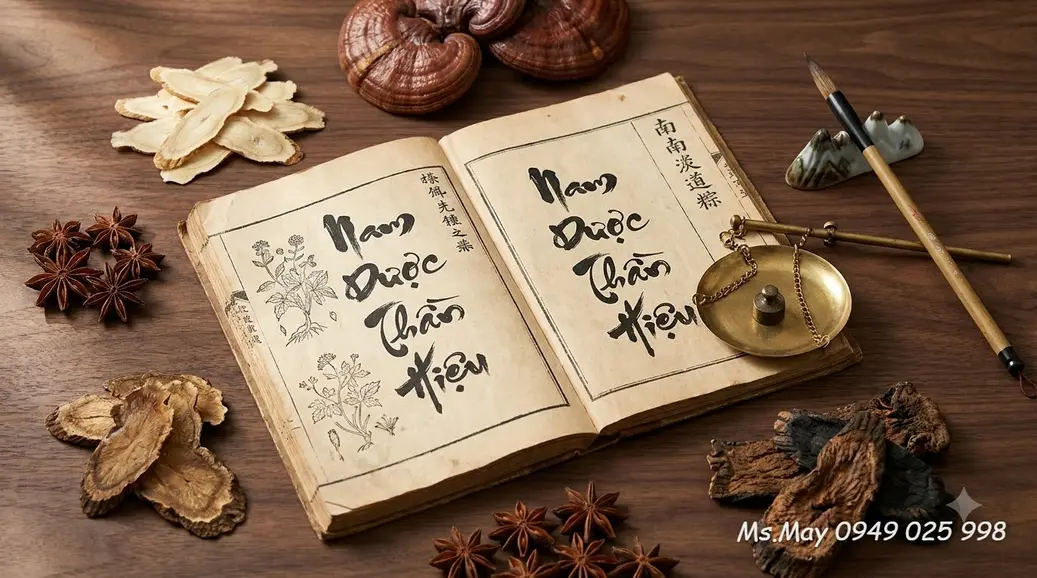 Nam
Dược
Thần
Hiệu
Nam
Dược
Thần
Hiệu
南南淡道粽
Ms.May 0949 025 998